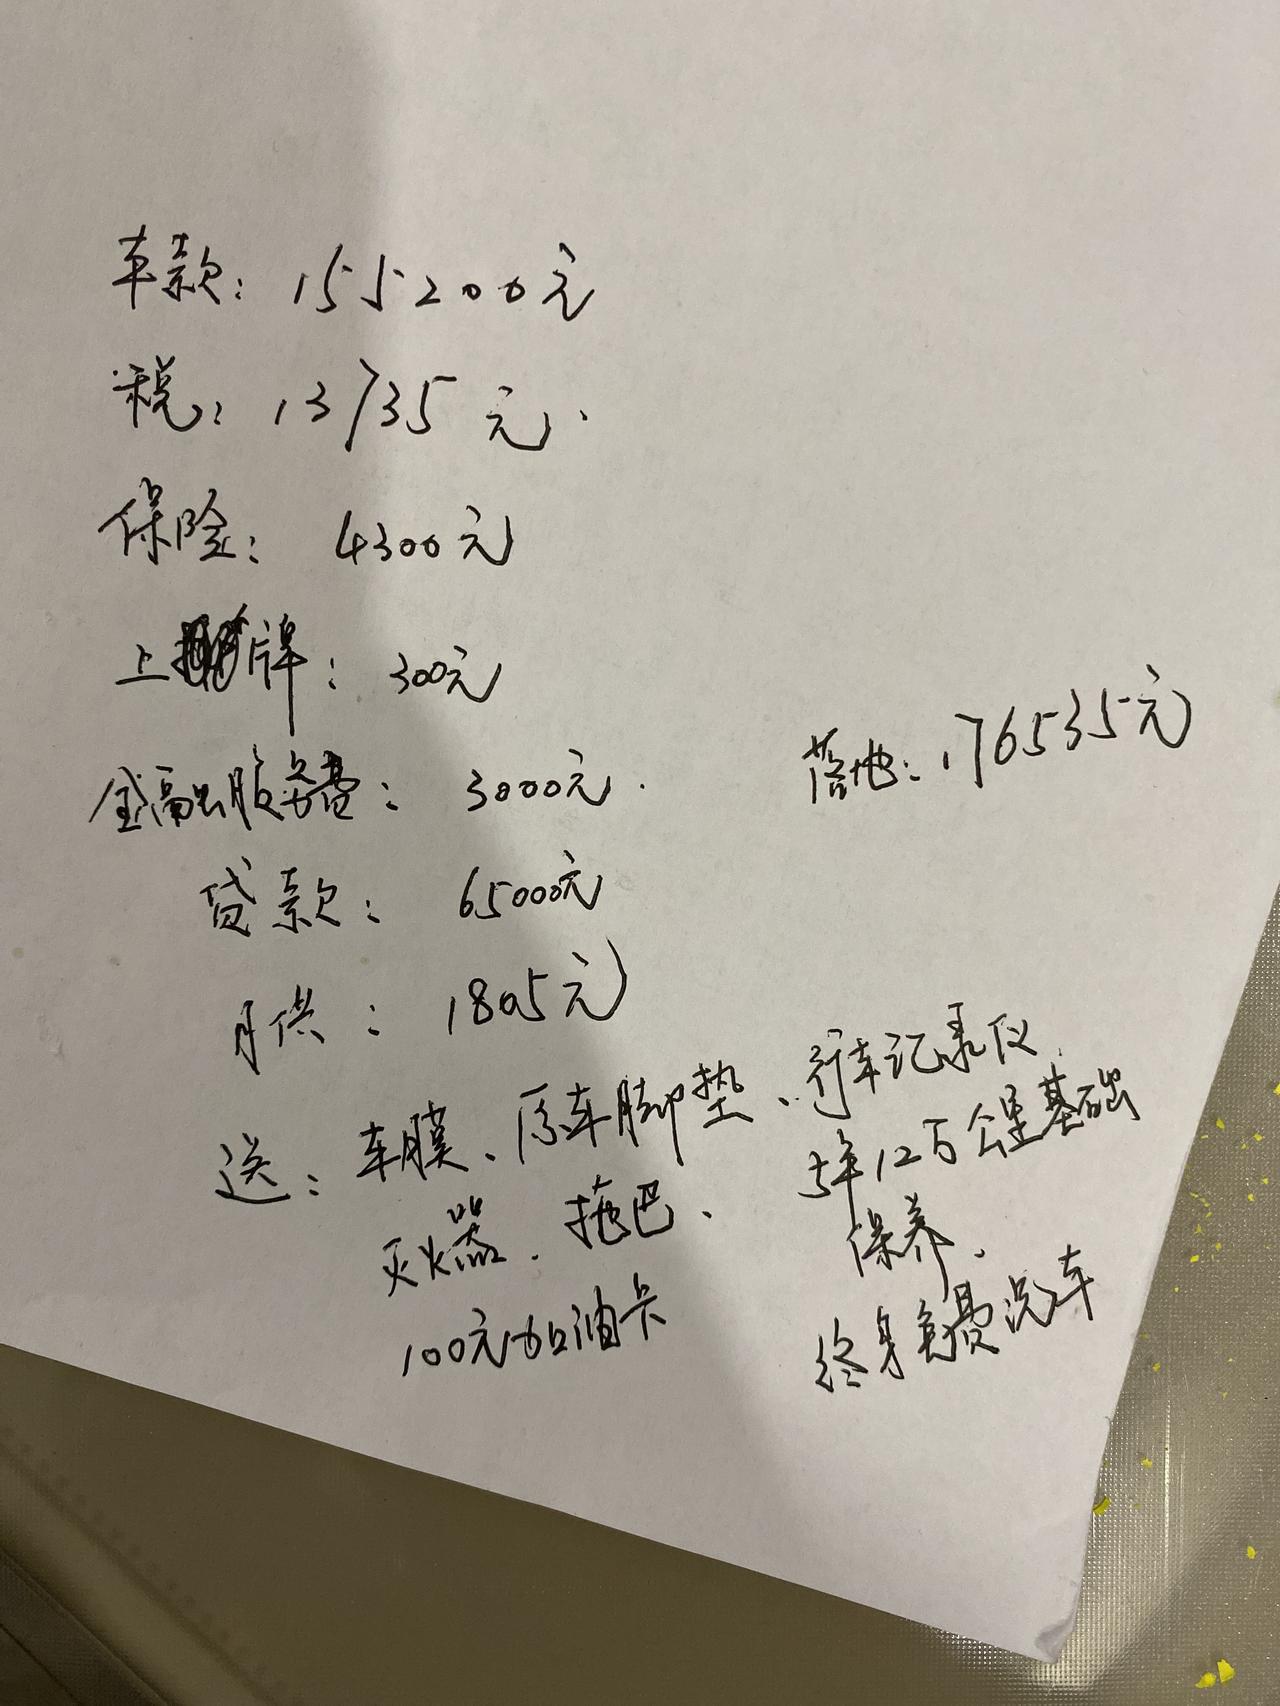 车款：155200元
税：13735元.
保险：4300元
上牌：300元
金融服务费：3000元.
落地：176535元
贷款：65000元
月供：1805元
送：车膜、原车脚垫、行车记录仪.
灭火器.拖巴、
100元加油卡
5年12万公里基础
保养、
终身免费洗车